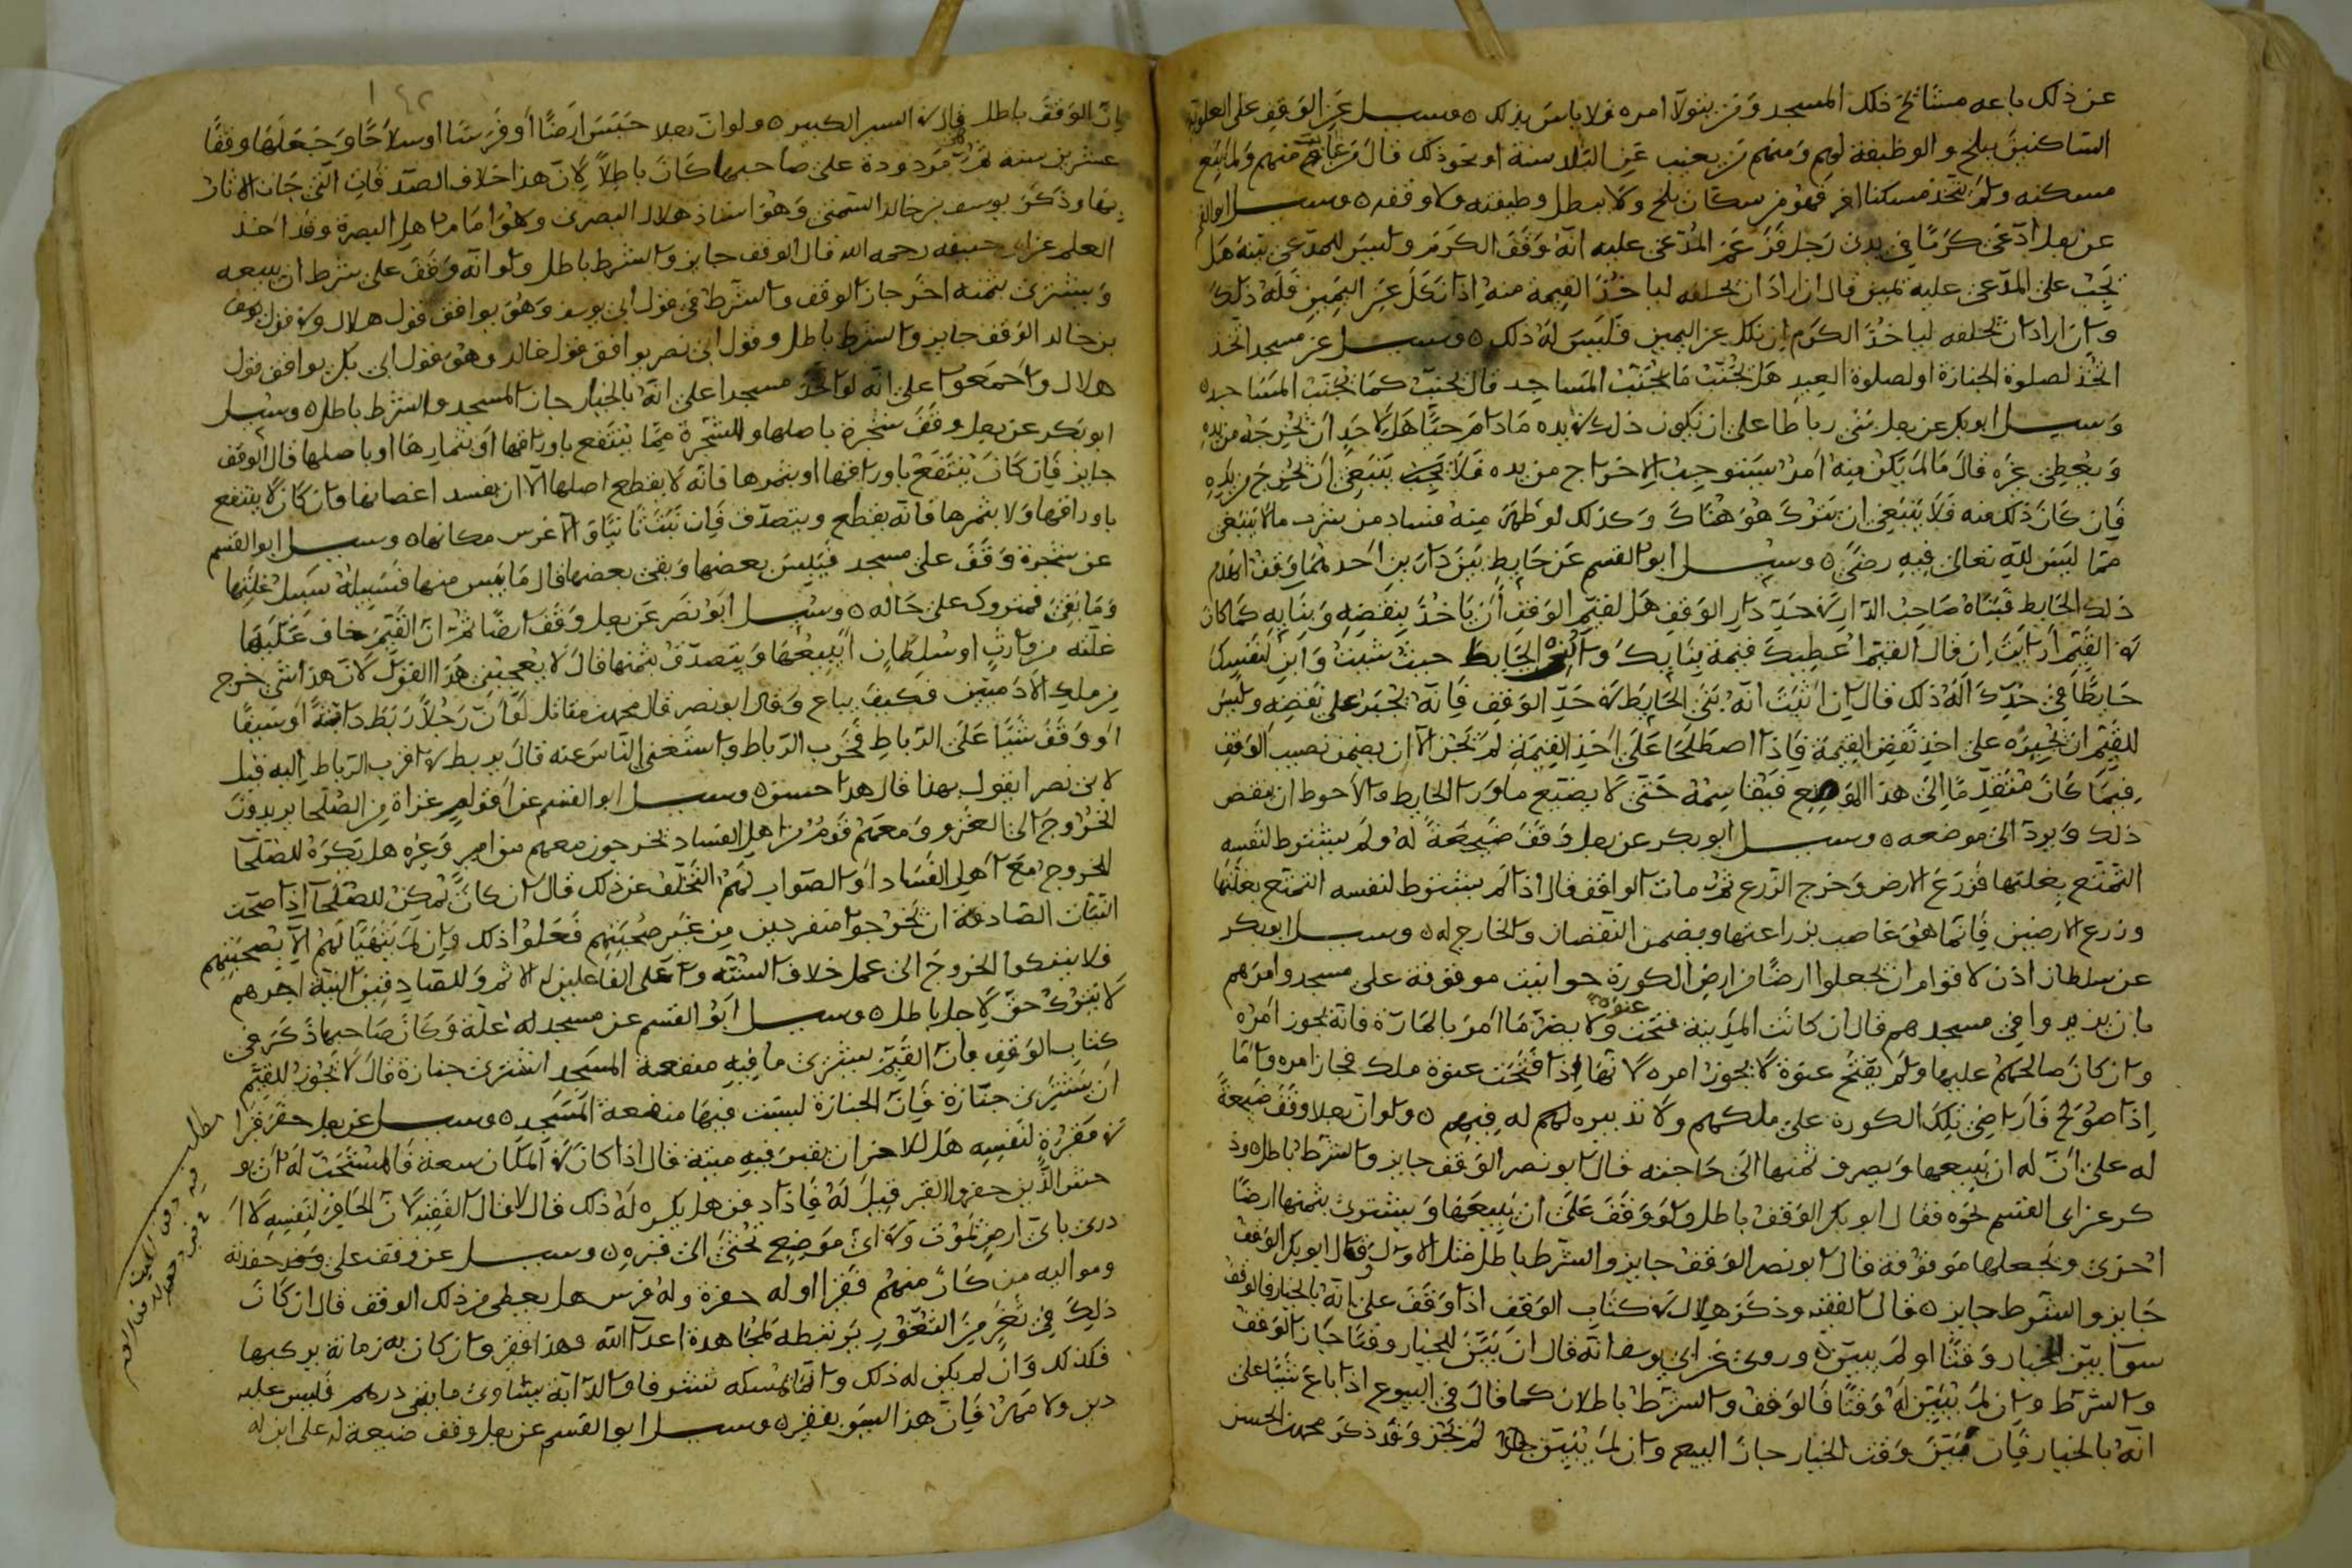 عن ذلك باعه مشائخ ذلك المسجد ومن يتولا امره قال لا باس بذلك ٥ وسيل عن الوقف على العلوية
الساكنين ببلخ والوظيفة لهم ومنهم من يغيب عن البلد سنة او نحو ذلك قال من غاب منهم ولم يبع
مسكنه ولم يتخذ مسكنا اخر فهو من سكان بلخ ولا يبطل وظيفته ولا وقفه ٥ وسيل ابو القسم
عن رجل ادعى كرما في يدي رجل فزعم المدعى عليه انه وقف الكرم وليس للمدعى بينة هل
يجب على المدعى عليه يمين قال ان اراد ان يحلفه لياخذ القيمة منه اذا نكل عن اليمين فله ذلك
وان اراد ان يحلفه لياخذ الكرم ان نكل عن اليمين فليس له ذلك ٥ وسيل عن مسجد اتخذ
اتخذ لصلوة الجنازة او لصلوة العيد هل يجنب ما يجنب المساجد قال يجنب كما يجنب المساجد ٥
وسيل ابو بكر عن رجل بنى رباطا على ان يكون ذلك في يده ما دام حيا هل لاحد ان يخرجه من يده
ويعطي غيره قال ما لم يكن منه امر يستوجب الاخراج من يده فلا ينبغي ان يخرج من يده
فان كان ذلك منه فلا ينبغي ان يترك هو هناك وكذلك لو ظهر منه فساد من شرب ما لا ينبغي
مما ليس لله تعالى فيه رضى ٥ وسيل ابو القسم عن حايط بين دارين احدهما وقف انهدم
ذلك الحايط فبناه صاحب الدار في حد دار الوقف هل لقيم الوقف ان ياخذ بنقضه وبنايه كما كان
في القيم ارايت ان قال القيم اعطيك قيمة بنايك واترك الحايط حيث بنيت وابن لنفسك
حايطا في حدك اله ذلك قال ان اثبت انه بنى الحايط في حد الوقف فانه يجبر على نقضه وليس
للقيم ان يجبره على اخذ نقض القيمة فاذا اصطلحا على اخذ القيمة لم يجز الا ان يضمن نصيب الوقف
فيما كان متقدما الى هذا الموضع فيقاسمه حتى لا يضيع ما ورا الحايط والاحوط ان ينقض
ذلك ويرد الى موضعه ٥ وسيل ابو بكر عن رجل وقف ضيعة له ولم يشترط لنفسه
التمتع بغلتها فزرع الارض وخرج الزرع ثم مات الواقف قال اذا لم يشترط لنفسه التمتع بغلتها
وزرع الارضين فانما هو غاصب بزراعتها ويضمن النقصان والخارج له ٥ وسيل ابو بكر
عن سلطان اذن لاقوام ان يجعلوا ارضا من ارض الكورة حوانيت موقوفة على مسجد وامرهم
بان يزيدوا في مسجدهم قال ان كانت المدينة فتحت عنوة ولا يضر ما امر بالمارة فانه يجوز امره
وان كان صالحهم عليها ولم يفتح عنوة لا يجوز امره لانها اذا فتحت عنوة ملك فجاز امره واما
اذا صولح فاراضي تلك الكورة على ملكهم ولا تدبير لهم له فيهم ٥ ولو ان رجلا وقف ضيعة
له على ان له ان يبيعها ويصرف ثمنها الى حاجته قال ابو نصر الوقف جايز والشرط باطل وذ
كر عن ابي القسم نحوه فقال ابو بكر الوقف باطل ولو وقف على ان يبيعها ويشترى بثمنها ارضا
اخرى ويجعلها موقوفة قال ابو نصر الوقف جايز والشرط باطل مثل الاول وقال ابو بكر الوقف
جايز والشرط جايز ٥ قال الفقيه وذكر هلال في كتاب الوقف اذا وقف على انه بالخيار فالوقف
سوا بين للخيار وقتا او لم يبين ٥ وروى عن ابي يوسف انه قال ان بين للخيار وقتا جاز الوقف
والشرط وان لم يبين له وقتا فالوقف والشرط باطلان كما قال في البيوع اذا باع شيئا على
انه بالخيار فان بين وقت الخيار جاز البيع وان لم يبين لم يجز وقد ذكر محمد بن الحسن
ان الوقف باطل قال في السير الكبير ٥ ولو ان رجلا حبس ارضا او فرسا او سلاحا وجعلها وقفا
عشرين سنة ثم مردودة على صاحبها كان باطلا لان هذا خلاف الصدقات التي جات الاثار
بها وذكر يوسف بن خالد السمتي وهو استاذ هلال البصري وهو امام اهل البصرة وقد اخذ
العلم عن ابي حنيفه رحمه الله قال الوقف جايز والشرط باطل ولو انه وقف على شرط ان يبيعه
ويشترى بثمنه اخر جاز الوقف والشرط في قول ابي يوسف وهو يوافق قول هلال وفي قول يوسف
بن خالد الوقف جايز والشرط باطل وقول ابي نصر يوافق قول خالد وهو قول ابي بكر يوافق قول
هلال واجمعوا على انه لو اتخذ مسجدا على انه بالخيار جاز المسجد والشرط باطل ٥ وسيل
ابو بكر عن رجل وقف شجرة باصلها والشجرة مما ينتفع باوراقها او بثمارها او باصلها قال الوقف
جايز فان كان ينتفع باوراقها او بثمرها فانه لا يقطع اصلها الا ان يفسد اغصانها وان كان لا ينتفع
باوراقها ولا بثمرها فانه يقطع ويتصدق فان نبت ثانيا والا غرس مكانها ٥ وسيل ابو القسم
عن شجرة وقف على مسجد فيبس بعضها وبقي بعضها قال ما يبس منها فسبيله سبيل غلتها
وما بقي فمتروك على حاله ٥ وسيل ابو نصر عن رجل وقف ارضا ثم ان القيم خاف عليها
غلته من وارث او سلطان ايبيعها ويتصدق بثمنها قال لا يعجبني هذا القول لان هذا شي خرج
من ملك الادميين فكيف يباع وقال ابو نصر قال محمد بن مقاتل لو ان رجلا ربط دابة او سيفا
او وقف شيا على الرباط فخرب الرباط واستغنى الناس عنه قال يربط في اقرب الرباط اليه قيل
لابي نصر ايقول بهذا قال هذا حسن ٥ وسيل ابو القسم عن اقوام غزاة من الصلحا يريدون
الخروج الى الغزو ومعهم قوم من اهل الفساد يخرجون معهم وغيره هل يكره للصلحا
الخروج مع اهل الفساد او الصواب لهم التخلف عن ذلك قال ان كان يمكن للصلحا اذا صحت
النيات الصادقة ان يخرجوا منفردين من غير صحبتهم فعلوا ذلك وان لم يتهيا لهم الا بصحبتهم
فلا يتركوا الخروج الى عمل خلاف السنة وعلى الفاعلين الاثم وللصادقين النية اجرهم
لا يترك حق لاجل باطل ٥ وسيل ابو القسم عن مسجد له غلة وكان صاحبها ذكر في
كتاب الوقف بان القيم يشترى ما فيه منفعة المسجد اشترى جنازة قال لا يجوز للقيم
ان يشترى جنازة فان الجنازة ليست فيها منفعة المسجد ٥ وسيل عن رجل حفر قبرا
في مقبرة لنفسه هل للاخر ان يقبر فيه ميته قال اذا كان في المكان سعة فالمستحب له ان لا يو
حش الذين حفروا القبر قيل له فاذا دفن هل يكره له ذلك قال لا قال الفقيه لان الحافر لنفسه لا
درى باي ارض يموت وفي اى موضع يحتاج الى قبره ٥ وسيل عن وقف على حفدته
ومواليه من كان منهم فقيرا او له حفرة وله فرس هل يعطى من ذلك الوقف قال ان كان
ذلك في ثغر من الثغور يرتبطه لمجاهدة اعدا الله فهذا فقير وان كان به زمانة يركبها
فكذلك وان لم يكن له ذلك وانما يمسكه تشرفا والدابة يساوى مايتي درهم فليس عليه
دين ولا مهر فان هذا ليس بفقير ٥ وسيل ابو القسم عن رجل وقف ضيعة له على ابن له
مطلب